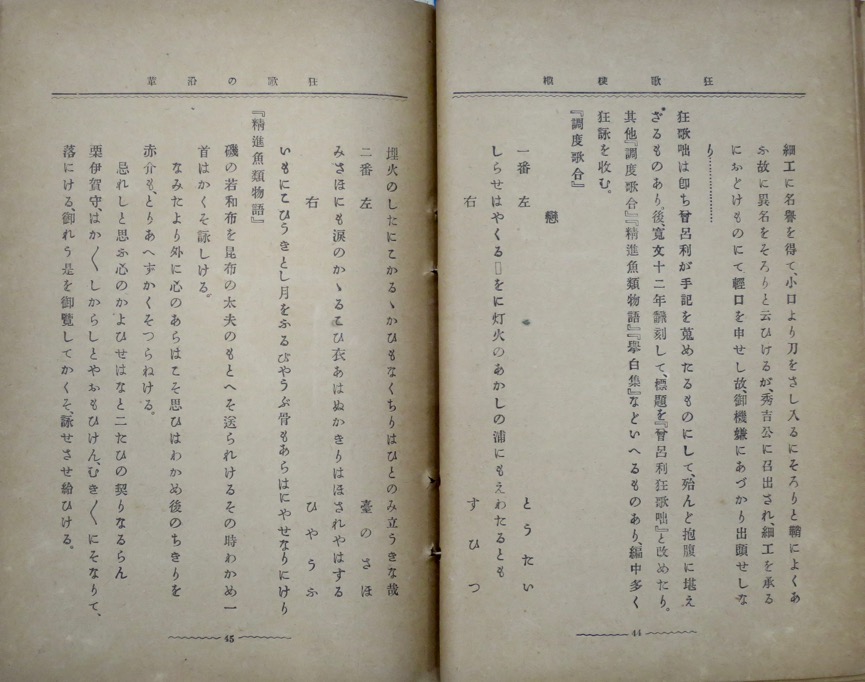 狂歌梗概
細工に名譽を得て、小口より刀をさし入るにそろりと鞘によくあ
ふ故に異名をそろりと云ひけるが、秀吉公に召出され、細工を承る
におどけものにて輕口を申せし故、御機嫌にあづかり出頭せしな
り……………
狂歌咄は卽ち曾呂利が手記を蒐めたるものにして、殆んど抱腹に堪え
ざるものあり。後、寬文十二年飜刻して、標題を『曾呂利狂歌咄』と改めたり。
其他『調度歌合』『精進魚類物語』『擧白集』などといへるものあり、編中多く
狂詠を收む。
『調度歌合』
戀
一番 左 とうたい
しらせはやくる▯をに灯火のあかしの浦にもえわたるとも
右 すひつ
44
狂歌の沿革
埋火のしたにこかるゝかひもなくちりはひとのみ立うきな哉
二番 左 臺のさほ
みさほにも涙のかゝるこひ衣あはぬかきりはほされやはする
右 ひやうふ
いもにこひうきとし月をふるびやうぶ骨もあらはにやせなりにけり
『精進魚類物語』
磯の若和布を昆布の太夫のもとへそ送られけるその時わかめ一
首はかくそ詠しける。
なみたより外に心のあらはこそ思ひはわかめ後のちきりを
赤介も、とりあへずかくそつらねける。
忌れしと思ふ心のかよひせはなと二たひの契りなるらん
栗伊賀守はか〱しからしとやおもひけん、むき〱にそなりて、
落にける、御れう是を御覽してかくそ、詠せさせ給ひける。
45